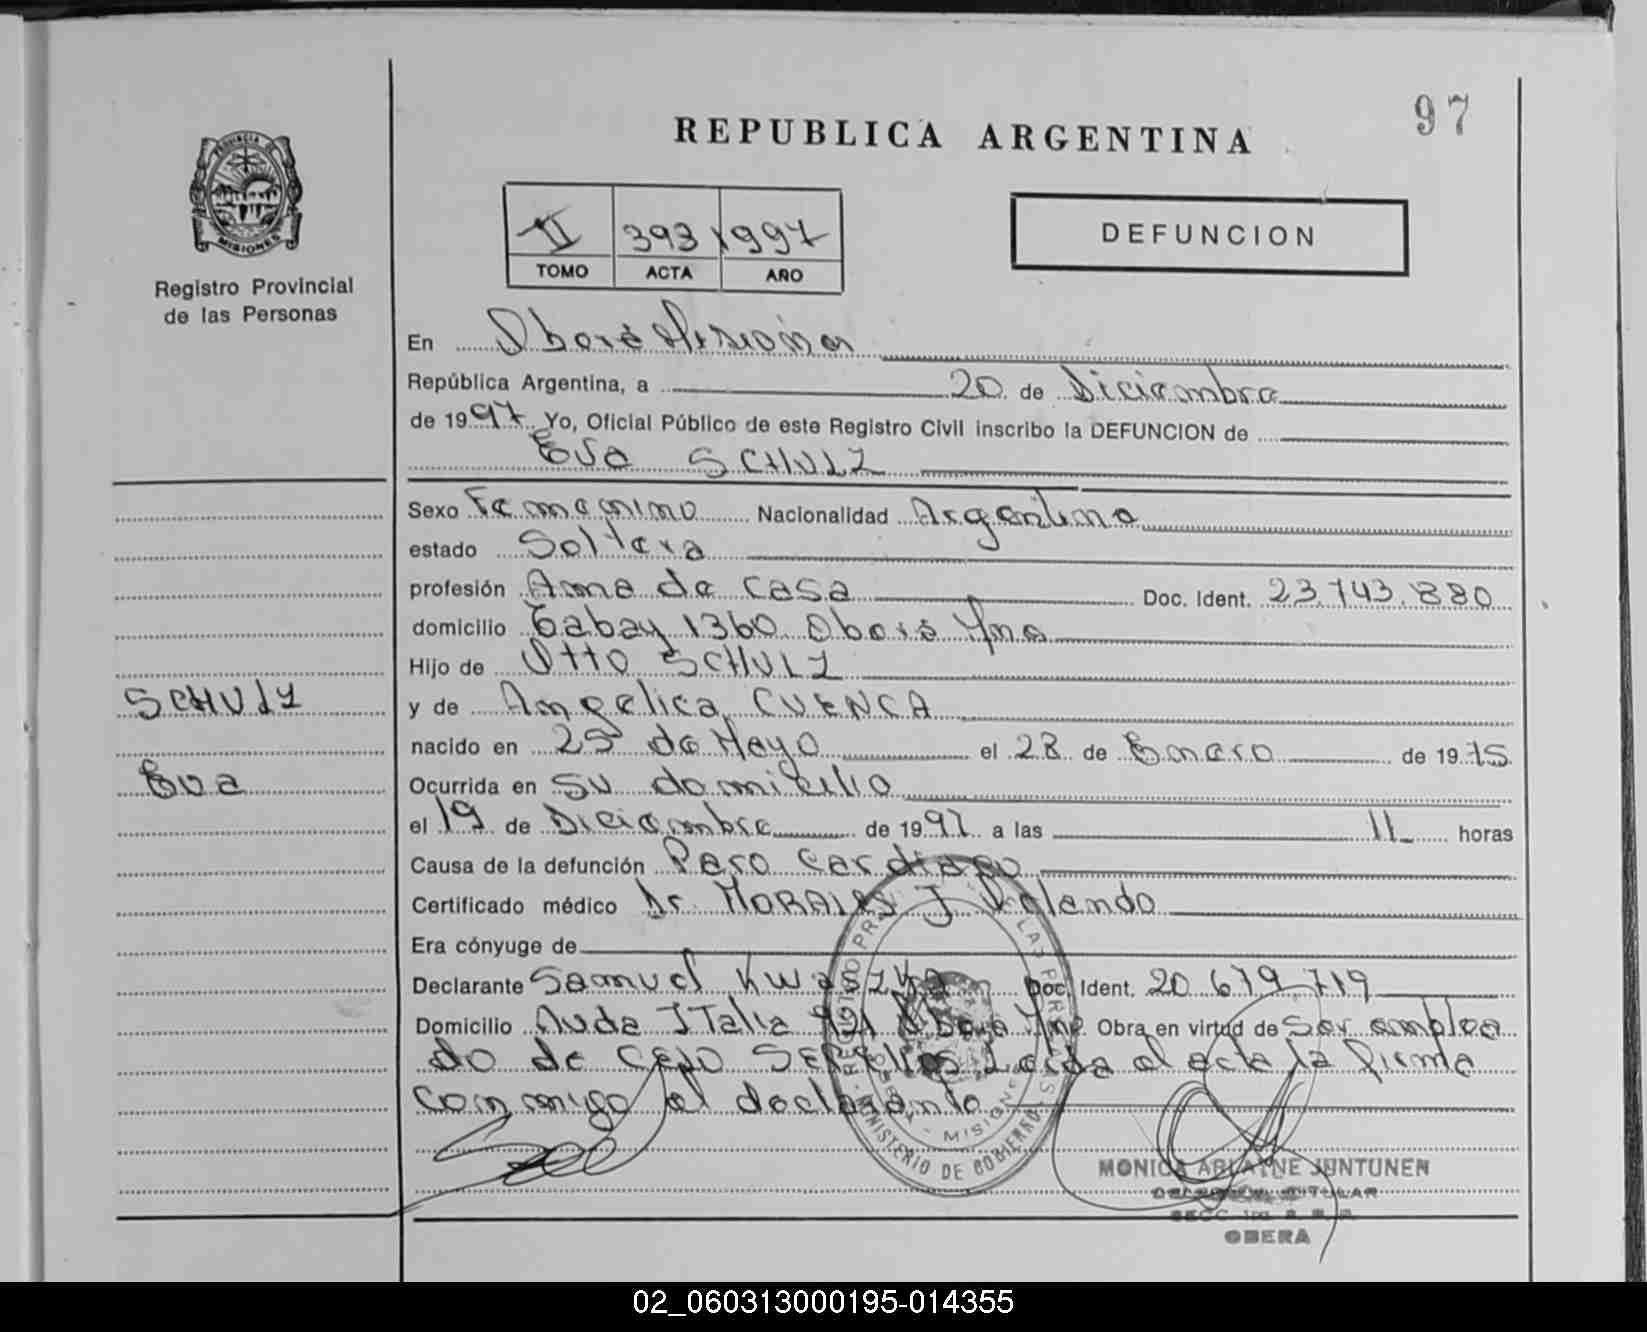 97
REPUBLICA ARGENTINA
PROVINCIA DE
MISIONES
Registro Provincial
de las Personas
II 393 1997
TOMO ACTA AÑO
DEFUNCION
En Oberá Misiones
República Argentina, a 20 de Diciembre
de 1997 Yo, Oficial Público de este Registro Civil inscribo la DEFUNCION de
Eva SCHULZ
Sexo Femenino Nacionalidad Argentina
estado Soltera
profesión Ama de casa Doc. Ident. 23.743.880
domicilio Cabay 1360 Oberá Mnes
Hijo de Otto SCHULZ
SCHULZ
y de Angelica CUENCA
nacido en 25 de Mayo el 28 de Enero de 1975
Eva
Ocurrida en su domicilio
el 19 de Diciembre de 1997 a las 11 horas
Causa de la defunción Paro cardiaco
Certificado médico Dr. MORALES J Rolando
Era cónyuge de
Declarante Samuel Kwaszka Doc. Ident. 20.679.719
Domicilio Avda ITalia 921 Oberá Mnes Obra en virtud de Ser emplea
do de CELO SERvicios Leida el acta la firma
conmigo el declarante
MISIONES
MINISTERIO DE GOBIERNO
MONICA ARLAINE JUNTUNEN
DELEGADA TITULAR
OBERA
02_060313000195-014355